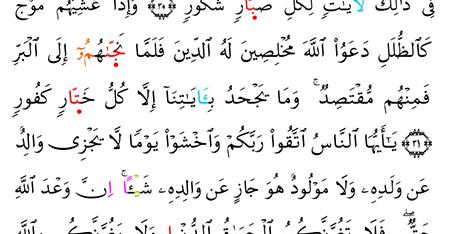 فِى ذَٰلِكَ لَـَٔايَـٰتٍ لِّكُلِّ صَبَّارٍ شَكُورٍ ﴿٣١﴾ وَإِذَا غَشِيَهُم مَّوْجٌ
كَٱلظُّلَلِ دَعَوُا۟ ٱللَّهَ مُخْلِصِينَ لَهُ ٱلدِّينَ فَلَمَّا نَجَّىٰهُمُۥٓ إِلَى ٱلْبَرِّ
فَمِنْهُم مُّقْتَصِدٌ ۚ وَمَا يَجْحَدُ بِـَٔايَـٰتِنَآ إِلَّا كُلُّ خَتَّارٍ كَفُورٍ
﴿٣١﴾ يَـٰٓأَيُّهَا ٱلنَّاسُ ٱتَّقُوا۟ رَبَّكُمْ وَٱخْشَوْا۟ يَوْمًا لَّا يَجْزِى وَالِدٌ
عَن وَلَدِهِۦ وَلَا مَوْلُودٌ هُوَ جَازٍ عَن وَالِدِهِۦ شَيْـًٔا ۚ إِنَّ وَعْدَ ٱللَّهِ
حَقٌّ ۖ فَلَا تَغُرَّنَّكُمُ ٱلْحَيَوٰةُ ٱلدُّنْيَا وَلَا يَغُرَّنَّكُم بِٱللَّهِ